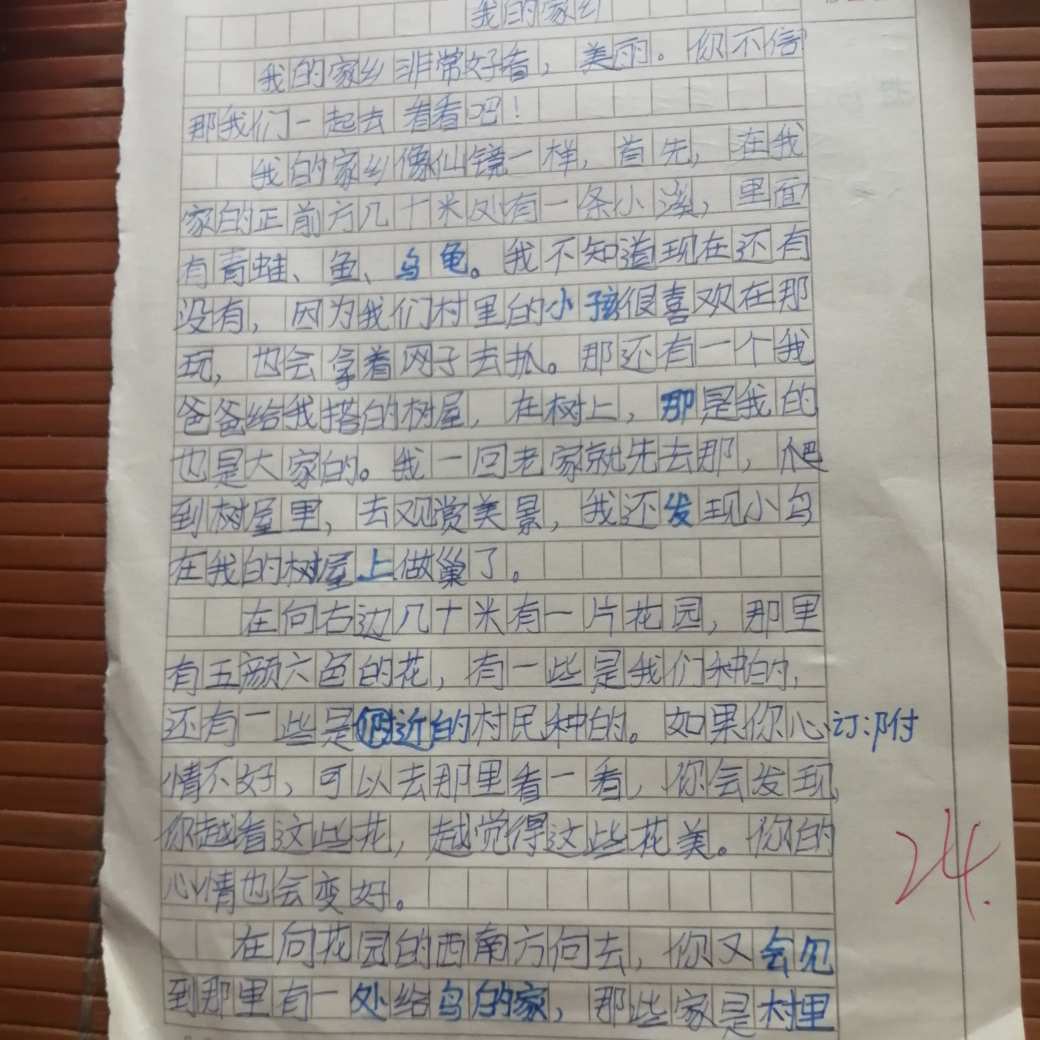 我的家乡
我的家乡非常好看，美丽。你不信
那我们一起去看看吧！
我的家乡像仙镜一样，首先，在我
家的正前方几十米处有一条小溪，里面
有青蛙、鱼、乌龟。我不知道现在还有
没有，因为我们村里的小孩很喜欢在那
玩，也会拿着网子去抓。那还有一个我
爸爸给我搭的树屋，在树上，那是我的
也是大家的。我一回老家就先去那，爬
到树屋里，去观赏美景，我还发现小鸟
在我的树屋上做巢了。
在向右边几十米有一片花园，那里
有五颜六色的花，有一些是我们种的，
还有一些是附近的村民种的。如果你心 订:附
情不好，可以去那里看一看，你会发现，
你越看这些花，越觉得这些花美。你的
心情也会变好。
24.
在向花园的西南方向去，你又会见
到那里有一处给鸟的家，那些家是村里